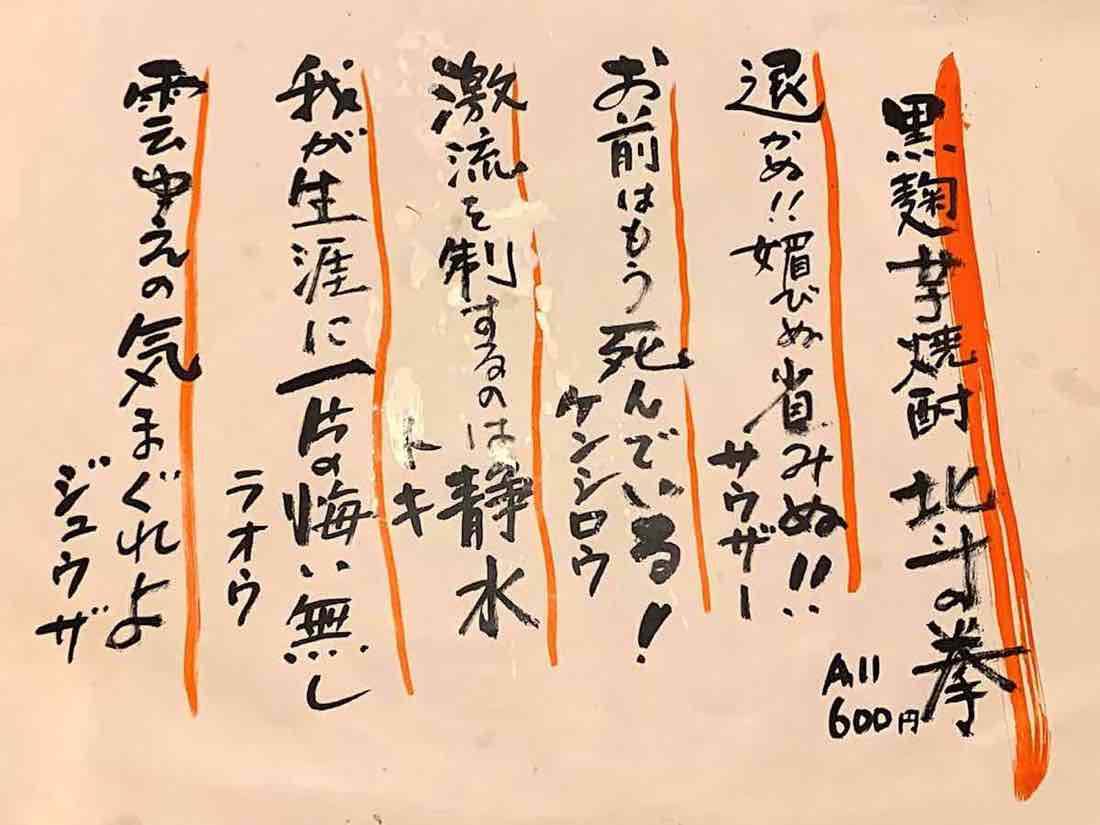 黒麹芋焼酎 北斗の拳
All
600円
退かぬ!!媚びぬ省みぬ!!
サウザー
お前はもう死んでいる!
ケンシロウ
激流を制するのは静水
トキ
我が生涯に一片の悔い無し
ラオウ
雲ゆえの気まぐれよ
ジュウザ